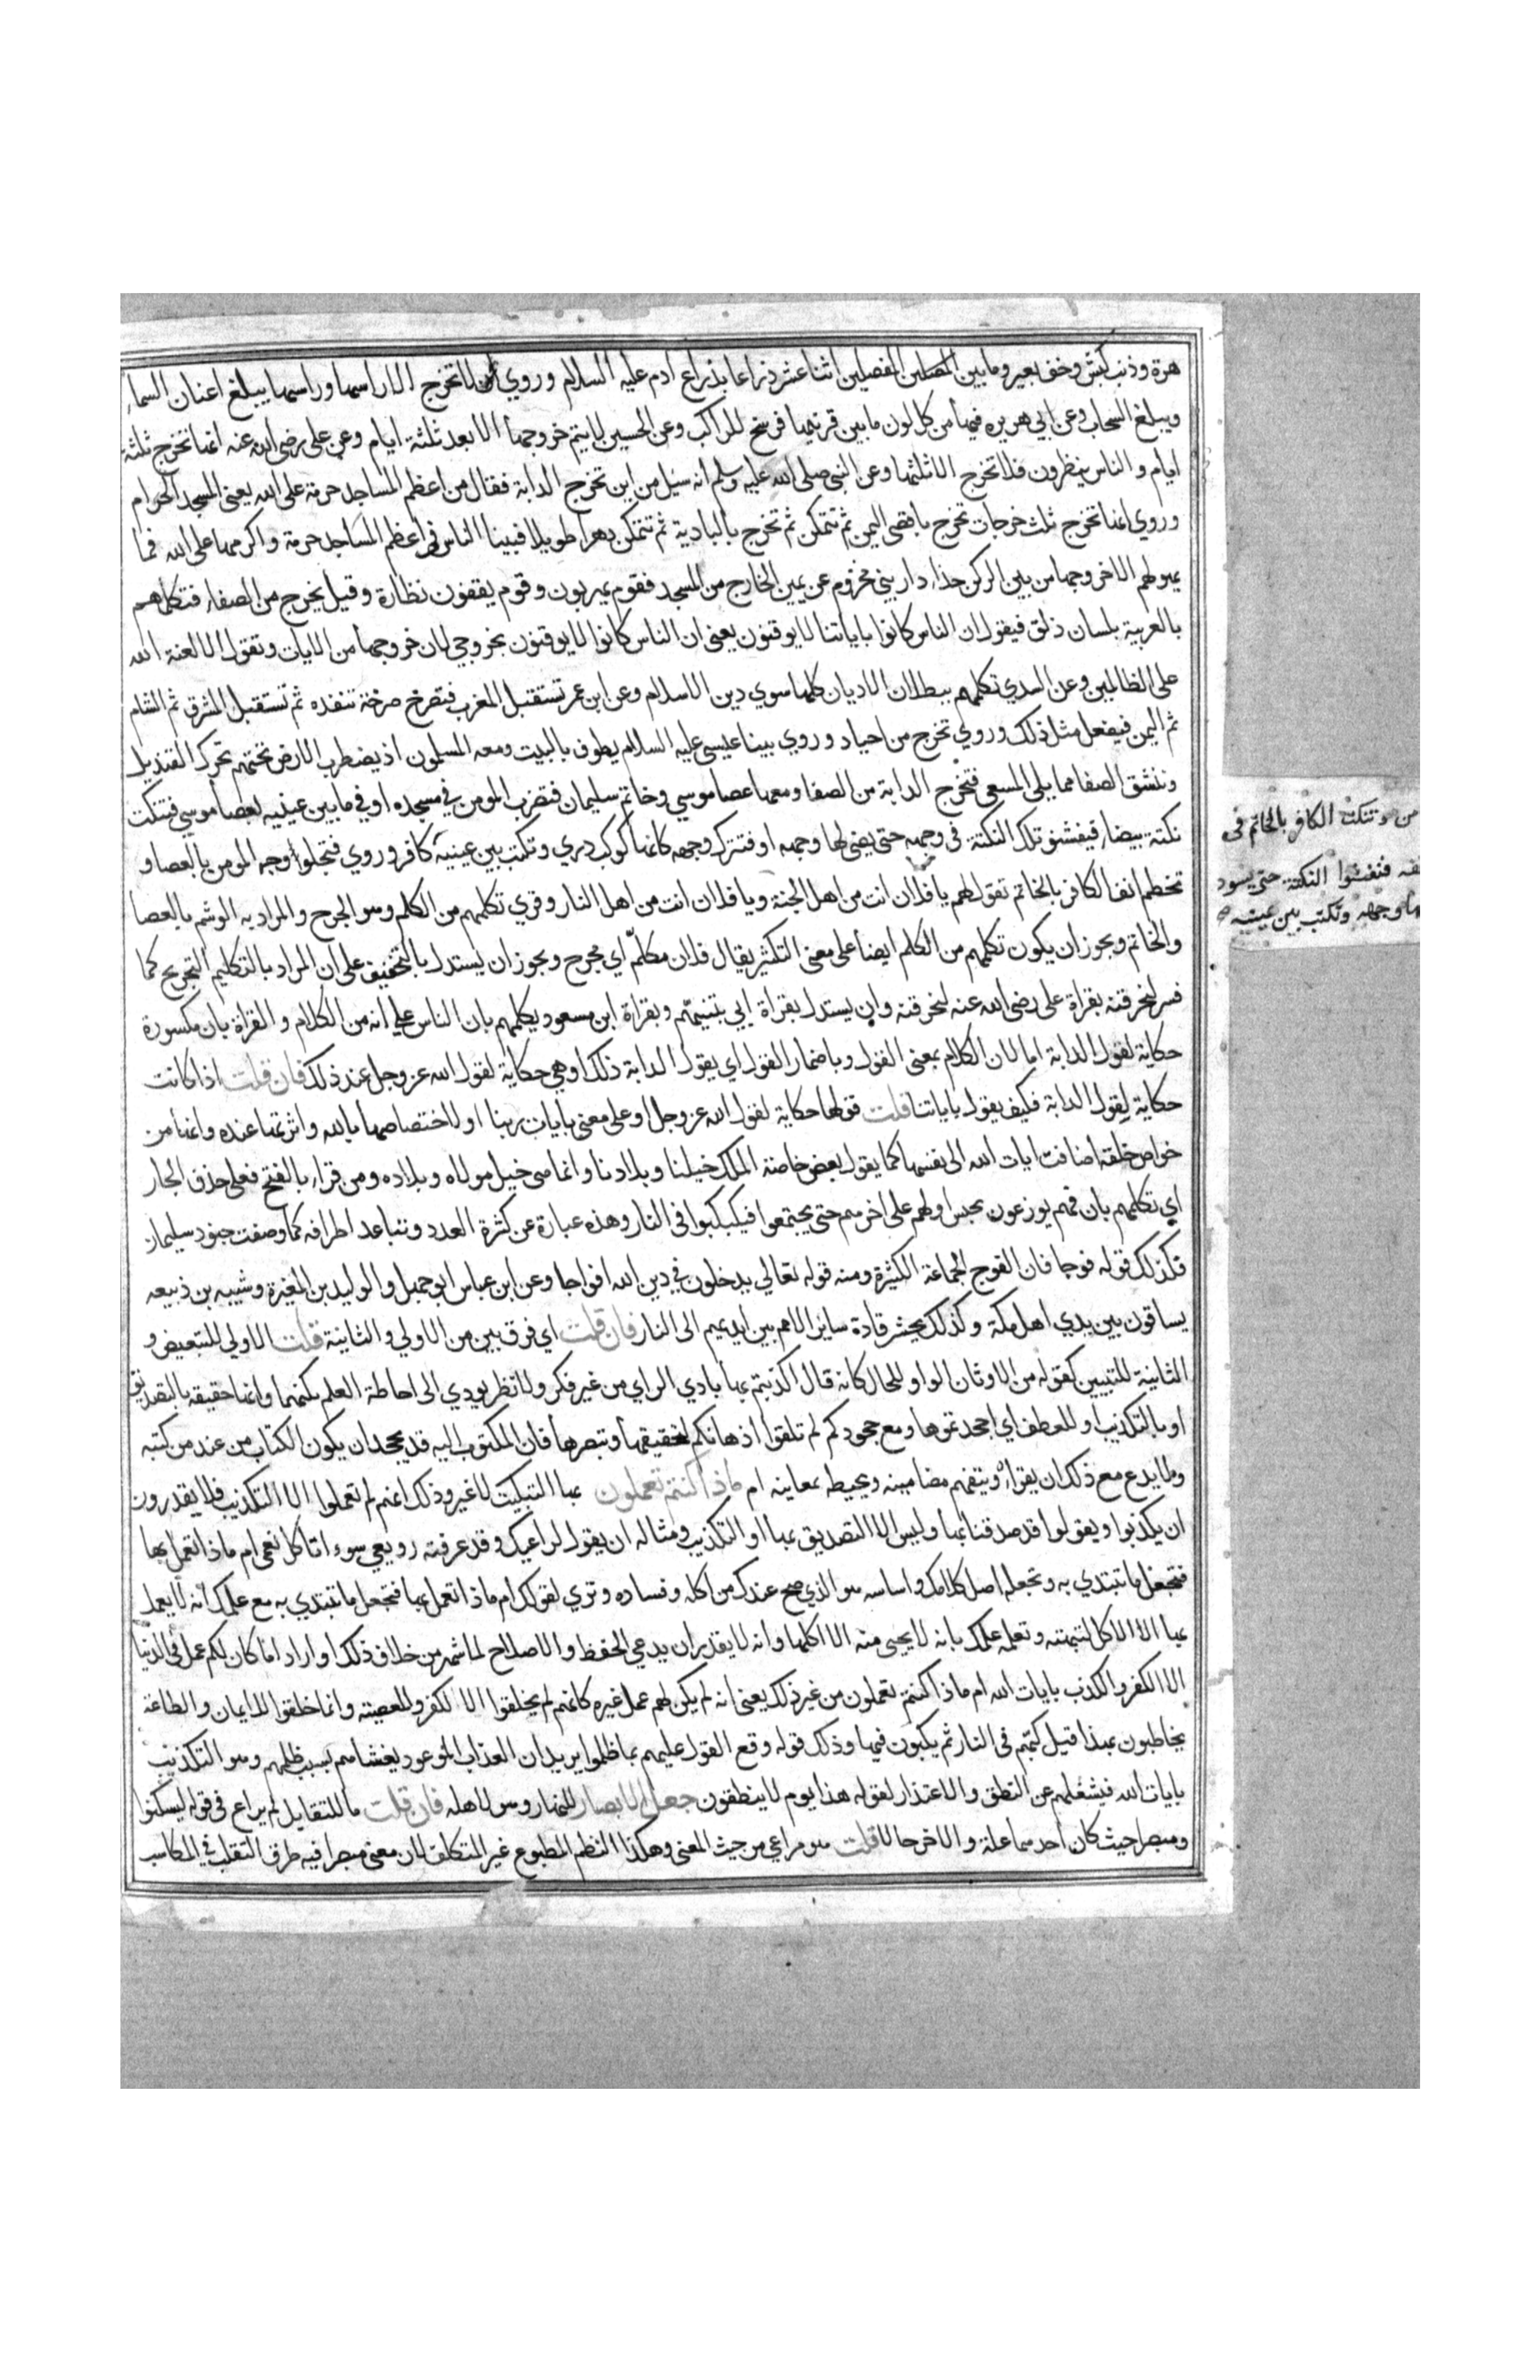 هرة وذنب كبش وخف بعير وما بين المفصلين اثنا عشر ذراعا بذراع ادم عليه السلام وروي لا تخرج الا راسها وراسها يبلغ اعنان السماء
ويبلغ السحاب وعن ابي هريره فيها من كل لون ما بين قرنيها فرسخ للراكب وعن الحسين لا يتم خروجها الا بعد ثلثة ايام وعن على رضى الله عنه انها تخرج ثلثة
ايام والناس ينظرون فلا تخرج الا ثلثها وعن النبى صلى الله عليه وسلم انه سئل من اين تخرج الدابة فقال من اعظم المساجد حرمة على الله يعنى المسجد الحرام
وروي انها تخرج ثلث خرجات تخرج باقصى اليمن ثم تتمكن ثم تخرج بالبادية ثم تتمكن دهرا طويلا فبينا الناس في اعظم المساجد حرمة واكرمها على الله فما
يهولهم الا خروجها من بين الركن حذاء دار بني مخزوم عن يمين الخارج من المسجد فقوم يهربون وقوم يقفون نظارة وقيل يخرج من الصفاء فتكلمهم
بالعربية بلسان ذلق فيقول ان الناس كانوا باياتنا لا يوقنون يعنى ان الناس كانوا لا يوقنون بخروجي لان خروجها من الايات وتقول الا لعنة الله
على الظالمين وعن السدي تكلمهم ببطلان الاديان كلها سوي دين الاسلام وعن ابن عمر تستقبل المغرب فتصرخ صرخة تنفذه ثم تستقبل المشرق ثم الشام
ثم اليمن فيفعل مثل ذلك وروي تخرج من اجياد وروي بينا عيسى عليه السلام يطوف بالبيت ومعه المسلمون اذ يضطرب الارض تحتهم تحرك القنديل
وتنشق الصفا مما يلى المسعى فتخرج الدابة من الصفا ومعها عصا موسي وخاتم سليمان فتضرب المومن في مسجده او في ما بين عينيه بعصا موسي فتنكت
نكتة بيضاء فيفشو تلك النكتة في وجهه حتى يضئ لها وجهه او فتترك وجهه كانها كوكب دري وتكتب بين عينيه كافر وروي فتجلوا وجه المومن بالعصا و
تخطم انف الكافر بالخاتم تقول لهم يا فلان انت من اهل الجنة ويا فلان انت من اهل النار وقري تكلمهم من الكلم وهو الجرح والمراد به الوشم بالعصا
والخاتم ويجوز ان يكون تكلمهم من الكلم ايضا على معنى التكثير يقال فلان مكلّم اي مجرح ويجوز ان يستدل بالتخفيف على ان المراد بالتكليم التجريح كما
فسر لنحرقنه بقراة على رضى الله عنه لنحرقنه وان يستدل بقراة ابي تنبيهم وبقراة ابن مسعود يكلمهم بان الناس على انه من الكلام والقراة بان مكسورة
حكاية لقول الدابة اما لان الكلام بمعنى القول وباضمار القول اي يقول الدابة ذلك اوهي حكاية لقول الله عز وجل عند ذلك فان قلت اذا كانت
حكاية لقول الدابة فكيف يقول باياتنا قلت قولها حكاية لقول الله عز وجل او على معنى بايات ربنا او لاختصاصها بالله واثرتها عنده وانها من
خواص خلقه اضافت ايات الله الى نفسها كما يقول بعض خاصة الملك خيلنا وبلادنا وانما هى خيل مولاه وبلاده ومن قراء بالفتح فعلى حذف الجار
اي تكلمهم بان فهم يوزعون يحبس اولهم على اخرهم حتى يجتمعوا فيكبكبوا فى النار وهذه عبارة عن كثرة العدد وتباعد اطرافه كما وصفت جنود سليمان
فكذلك قوله فوجا فان الفوج الجماعة الكثيرة ومنه قوله تعالي يدخلون في دين الله افواجا وعن ابن عباس ابو جهل والوليد بن المغيرة وشيبه بن ربيعه
يساقون بين يدي اهل مكة وكذلك يحشر قادة ساير الامم بين ايديهم الى النار فان قلت اي فرق بين من الاولي والثانية قلت الاولي للتبعيض و
الثانية للتبيين كقوله من الاوثان الواو للحال كانه قال اكذبتم بها بادي الراي من غير فكر ولا نظر يودي الى احاطة العلم بكنهها وانها حقيقه بالتصديق
او بالتكذيب او للعطف اي اجحدتموها ومع جحودكم لم تلقوا اذهانكم لتحقيقها وتبصرها فان المكتوب اليه قد يجحد ان يكون الكتاب من عند من كتبه
ولا يدع مع ذلك ان يقراه ويتفهم مضامينه ويحيط بمعانيه ام ماذا كنتم تعملون بها التبكيت لا غير وذلك انهم لم يعملوا الا التكذيب فلا يقدرون
ان يكذبوا ويقولوا قد صدقنا بها وليس الا التصديق بها او التكذيب ومثاله ان يقول لراعيك وقد عرفته رويعي سوء اتاكل نعمي ام ماذا تعمل بها
فتجعل ما تبتدي به وتجعله اصل كلامك واساسه هو الذي صح عندك من اكله وفساده وتري لقولك ام ماذا تعمل بها فتجعل ما تبتدي به مع علمك انه لا يعمل
بها الا الاكل لتبهته وتعلمه علمك بانه لا يجيئ منه الا اكلها وانه لا يقدر ان يدعي الحفظ والاصلاح لما شهر من خلاف ذلك او اراد اما كان لكم عمل في الدنيا
الا الكفر والكذب بايات الله ام ماذا كنتم تعملون من غير ذلك يعنى انه لم يكن لهم عمل غيره كانهم لم يخلقوا الا للكفر والمعصيته وانما خلقوا للايمان والطاعة
يخاطبون بهذا قبل كبهم فى النار ثم يكبون فيها وذلك قوله وقع القول عليهم بما ظلموا يريد ان العذاب الموعود يغشاهم بسبب ظلمهم وهو التكذيب
بايات الله فيشغلهم عن النطق والاعتذار لقوله هذا يوم لا ينطقون جعل الابصار للنهار وهو لاهله فان قلت ما للتقابل لم يراع فى قوله ليسكنوا
ومبصرا حيث كان احدهما علة والاخر حالا قلت هو مراعي من حيث المعنى وهكذا النظم المطبوع غير المتكلف لان معنى مبصرا فيه طرق التقلب في المكاسب
من وتنكت الكافر بالخاتم فى
فتفشوا النكتة حتى يسود
وجهه وتكتب بين عينيه